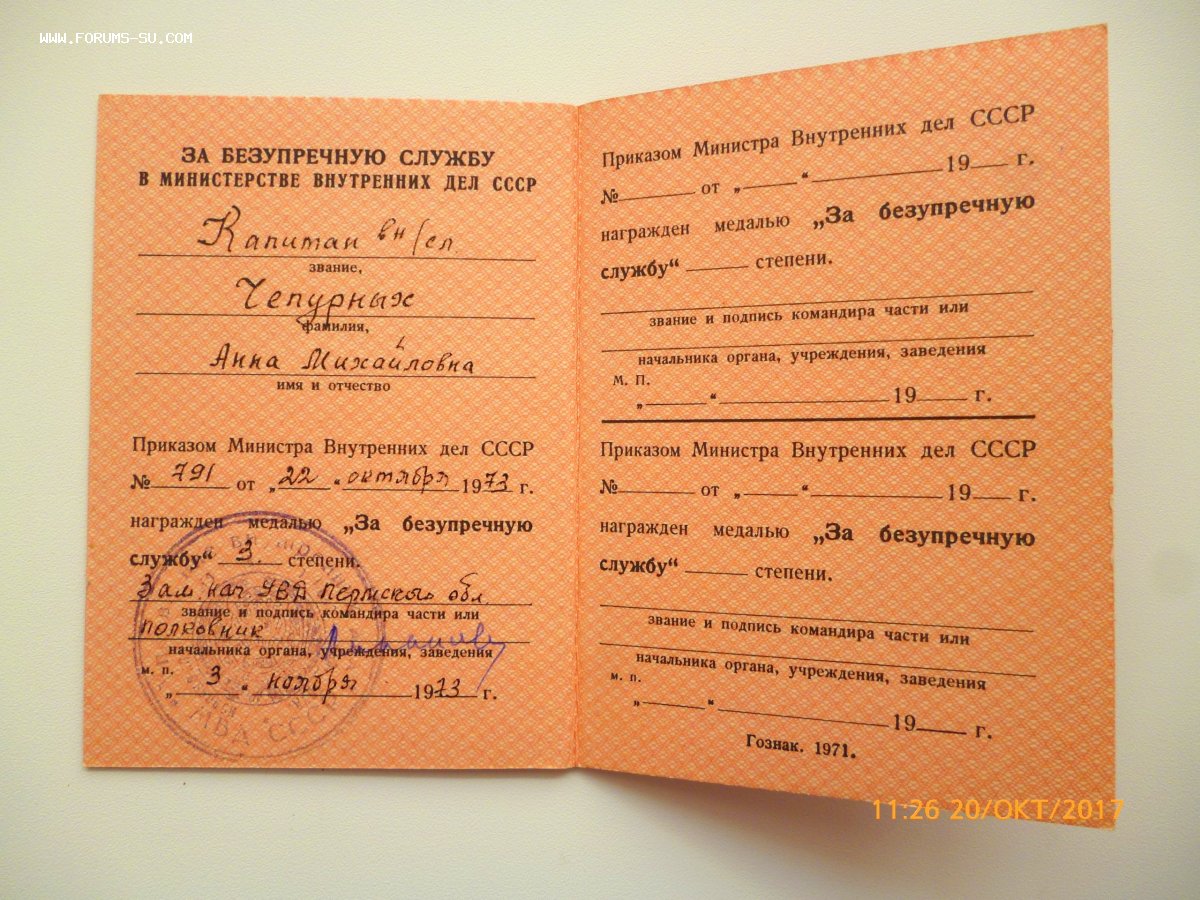 WWW.FORUMS-SU.COM
ЗА БЕЗУПРЕЧНУЮ СЛУЖБУ
В МИНИСТЕРСТВЕ ВНУТРЕННИХ ДЕЛ СССР
Капитан вн/сл.
звание,
Чепурных
фамилия,
Анна Михайловна
имя и отчество
Приказом Министра Внутренних дел СССР
№ 791 от „22“ октября 1973 г.
награжден медалью „За безупречную
службу“ 3. степени.
Зам. нач. УВД Пермской обл.
звание и подпись командира части или
полковник
начальника органа, учреждения, заведения
м. п.
„3“ ноября 1973 г.
МВД СССР
Приказом Министра Внутренних дел СССР
№ от „ “ 19 г.
награжден медалью „За безупречную
службу“ степени.
звание и подпись командира части или
начальника органа, учреждения, заведения
М. П.
„ “ 19 г.
Приказом Министра Внутренних дел СССР
№ от „ “ 19 г.
награжден медалью „За безупречную
службу“ степени.
звание и подпись командира части или
начальника органа, учреждения, заведения
м. п.
„ “ 19 г.
Гознак. 1971.
11:26 20/ОКТ/2017